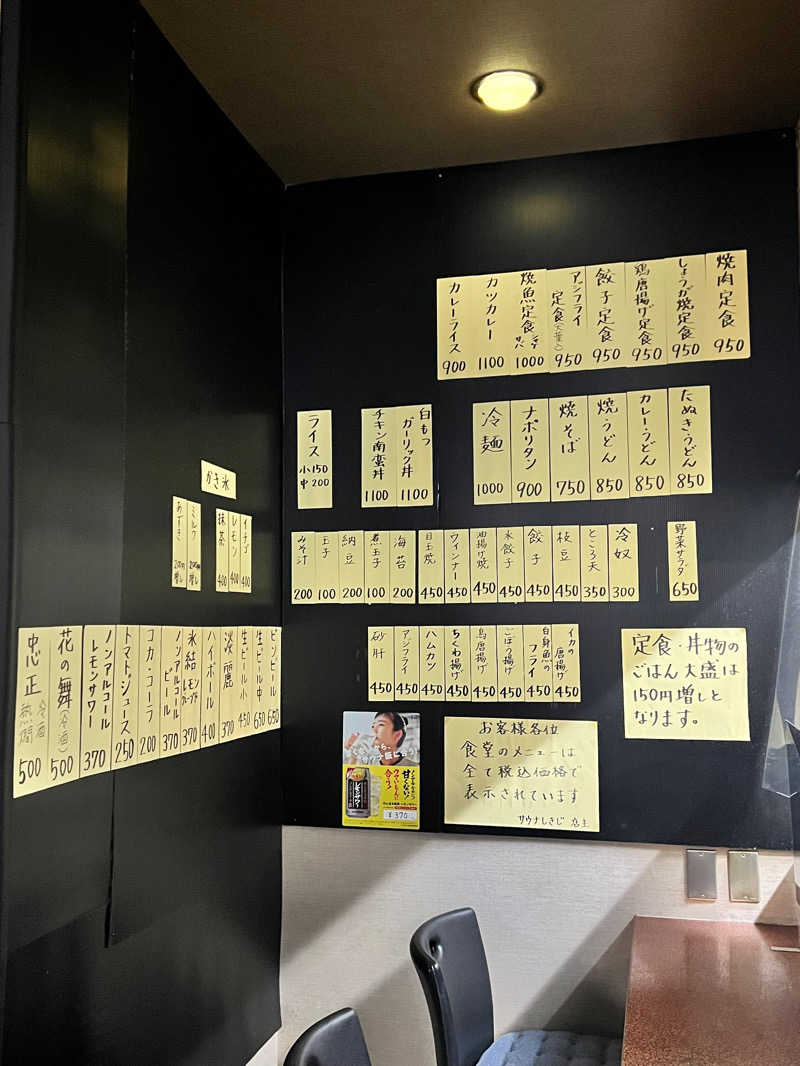 焼肉定食 950
しょうが焼定食 950
鶏唐揚げ定食 950
餃子定食 950
アジフライ定食 950
焼魚定食 1000
カツカレー 1100
カレーライス 900
たぬきうどん 850
カレーうどん 850
焼うどん 850
焼そば 750
ナポリタン 900
冷麺 1000
白もつガーリック丼 1100
チキン南蛮丼 1100
ライス 小150 中200
野菜サラダ 650
冷奴 300
ところ天 350
枝豆 450
餃子 450
水餃子 450
油揚げ焼 450
ウィンナー 450
目玉焼 450
海苔 200
煮玉子 100
納豆 200
玉子 100
みそ汁 200
イカの唐揚げ 450
白身魚のフライ 450
ごぼう揚げ 450
鳥唐揚げ 450
ちくわ揚げ 450
ハムカツ 450
アジフライ 450
砂肝 450
定食・丼物の
ごはん大盛は
150円増しと
なります。
お客様各位
食堂のメニューは
全て税込価格で
表示されています
サウナしきじ 店主
甘くない!
レモンサワー
¥370
かき氷
イチゴ 400
レモン 400
抹茶 400
ミルク 200円増し
あずき 200円増し
ビンビール 650
生ビール中 650
生ビール小 450
淡麗 370
ハイボール 400
氷結 レモン 370
ノンアルコールビール 370
コカ・コーラ 200
トマトジュース 250
ノンアルコールレモンサワー 370
花の舞(冷酒) 500
忠正 冷酒 熱燗 500